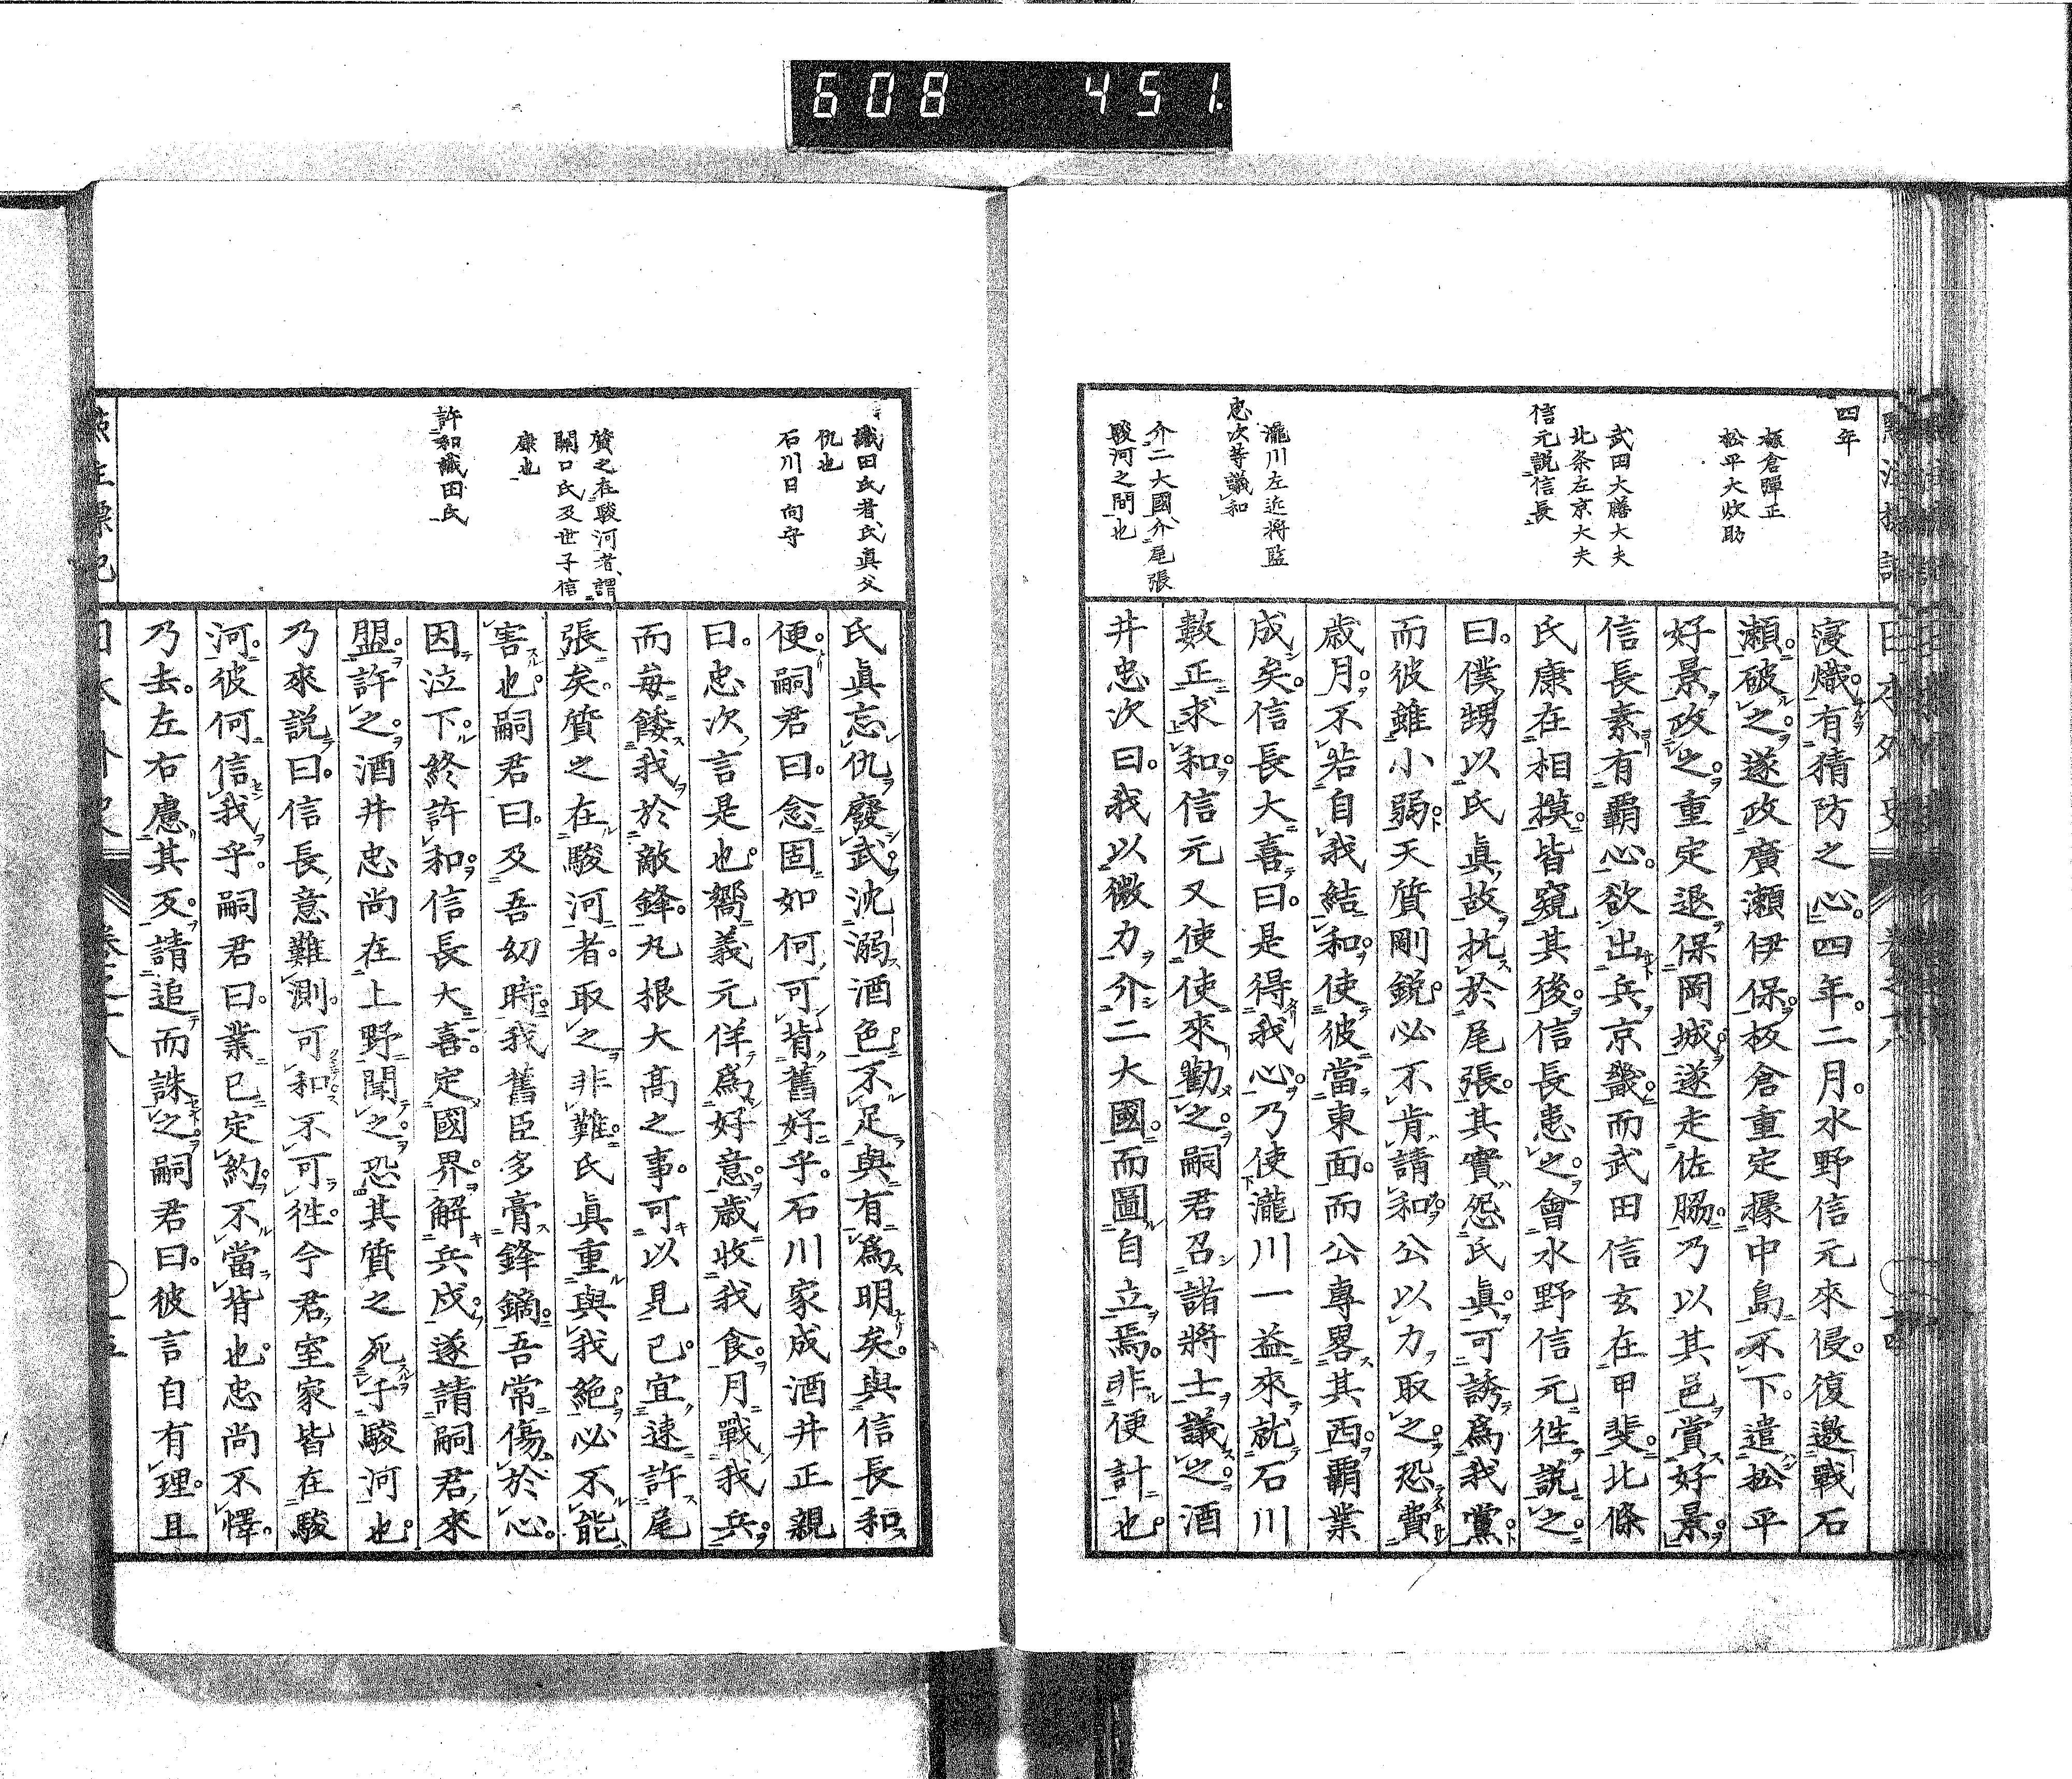 608 451
四年
板倉彈正
松平大炊助
武田大膳大夫
北条左京大夫
信元説信長
瀧川左近將監
忠次等議和
介二大國介尾張
駿河之間也
寖熾有猜防之心四年二月水野信元來侵復邀戰石
瀬破之遂攻廣瀬伊保板倉重定據中島不下遣松平
好景攻之重定退保岡城遂走佐脇乃以其邑賞好景
信長素有覇心欲出兵京畿而武田信玄在甲斐北條
氏康在相摸皆窺其後信長患之會水野信元徃説之
曰僕甥以氏眞故抗於尾張其實怨氏眞可誘爲我黨
而彼雖小弱天質剛鋭必不肯請和公以力取之恐費
歳月不若自我結和使彼當東面而公專畧其西覇業
成矣信長大喜曰是得我心乃使瀧川一益來就石川
數正求和信元又使使來勸之嗣君召諸將士議之酒
井忠次曰我以微力介二大國而圖自立焉非便計也
織田氏者氏眞父
仇也
石川日向守
質之在駿河者謂
關口氏及世子信
康也
許和織田氏
氏眞忘仇廢武沈溺酒色不足與有爲明矣與信長和
便嗣君曰念固如何可背舊好乎石川家成酒井正親
曰忠次言是也嚮義元佯爲好意歳收我食月戰我兵
而毎餧我於敵鋒丸根大髙之事可以見已宜速許尾
張矣質之在駿河者取之非難氏眞重與我絶必不能
害也嗣君曰及吾幼時我舊臣多膏鋒鏑吾常傷於心
因泣下終許和信長大喜定國界解兵戍遂請嗣君來
盟許之酒井忠尚在上野聞之恐其質之死于駿河也
乃來説曰信長意難測可和不可徃今君室家皆在駿
河彼何信我乎嗣君曰業已定約不當背也忠尚不懌
乃去左右慮其反請追而誅之嗣君曰彼言自有理且